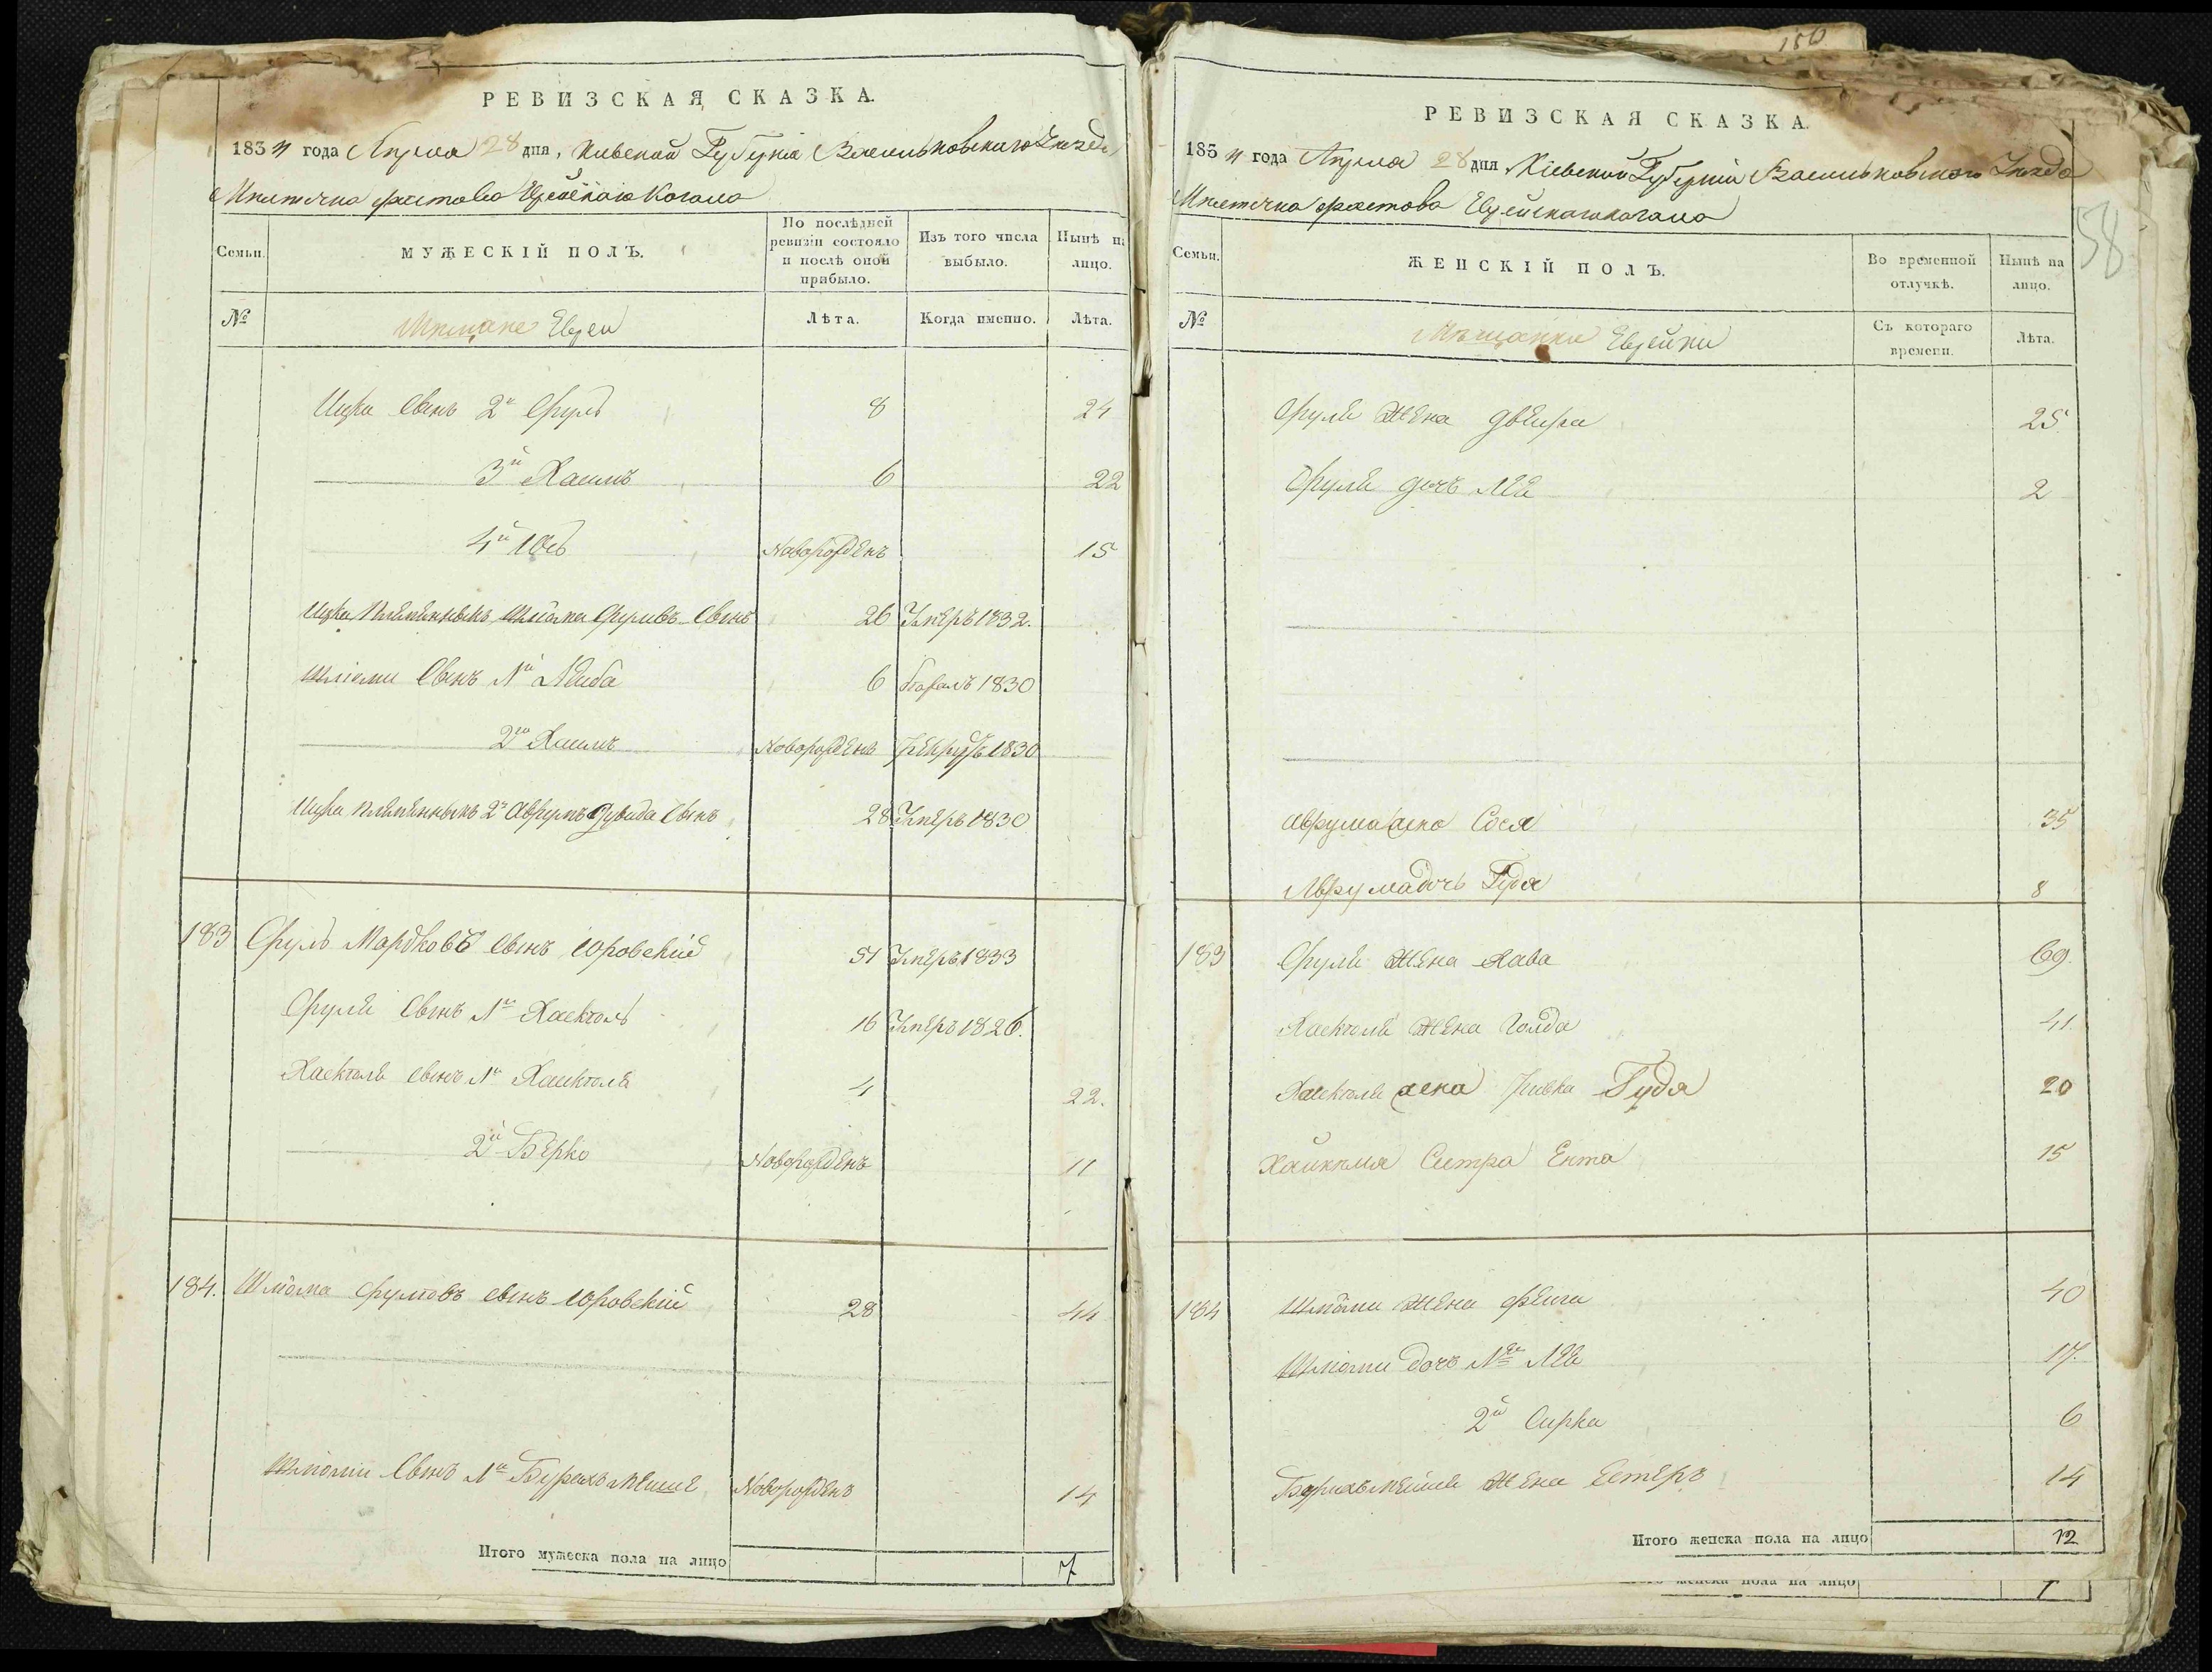 РЕВИЗСКАЯ СКАЗКА.
1834 года Апреля 28 дня, Киевской Губерніи Васильковскаго Уезда
Местечка Фастова Еврейскаго Кагала
Семьи.
МУЖЕСКІЙ ПОЛЪ.
По послѣдней ревизіи состояло и послѣ оной прибыло.
Изъ того числа выбыло.
Нынѣ на лицо.
№
Мещане Евреи
Лѣта.
Когда именно.
Лѣта.
Ицка Сынъ 2й Сруль 8 24
3й Хаимъ 6 22
4й Іось Новорожденъ 15
Ицка Племенныкъ Шліома Срулевъ Сынъ 26 Умеръ 1832.
Шліоми Сынъ 1й Лейба 6 1830
2й Хаимъ Новорожденъ 1830
Ицка Племенныкъ 2й Аврумъ Дувида Сынъ 28 Умеръ 1830
183 Сруль Мордковъ Сынъ Юровскій 51 Умеръ 1833
Сруля Сынъ 1й Хаскель 16 Умеръ 1826.
Хаскеля Сынъ 1й Хаикель 4 22.
2й Берко Новорожденъ 11
184. Шліома Срулевъ Сынъ Юровскій 28 44
Шліоми Сынъ 1й Бурехъ Мейше Новорожденъ 14
Итого мужеска пола на лицо 7
150
РЕВИЗСКАЯ СКАЗКА.
1834 года Апреля 28 дня, Кіевской Губерніи Васильковскаго Уезда
Местечка Фастова Еврейскаго кагала
58
Семьи.
ЖЕНСКІЙ ПОЛЪ.
Во временной отлучкѣ.
Нынѣ на лицо.
№
Мѣщанки Еврейки
Съ котораго времени.
Лѣта.
Сруля Жена Двейра 25.
Сруля дочь Лея 2
Аврума жена Сося 35
Аврума дочь Гудя 8
183 Сруля Жена Хава 69.
Хаскеля Жена Голда 41.
Хаскеля жена Ривка Гудя 20
Хайкеля Систра Ента 15
184 Шліоми Жена Фейга 40
Шліоми дочь 1я Лея 17.
2й Сирка 6
Борихъ Мейши Жена Естеръ 14
Итого женска пола на лицо 12
женска пола на лицо